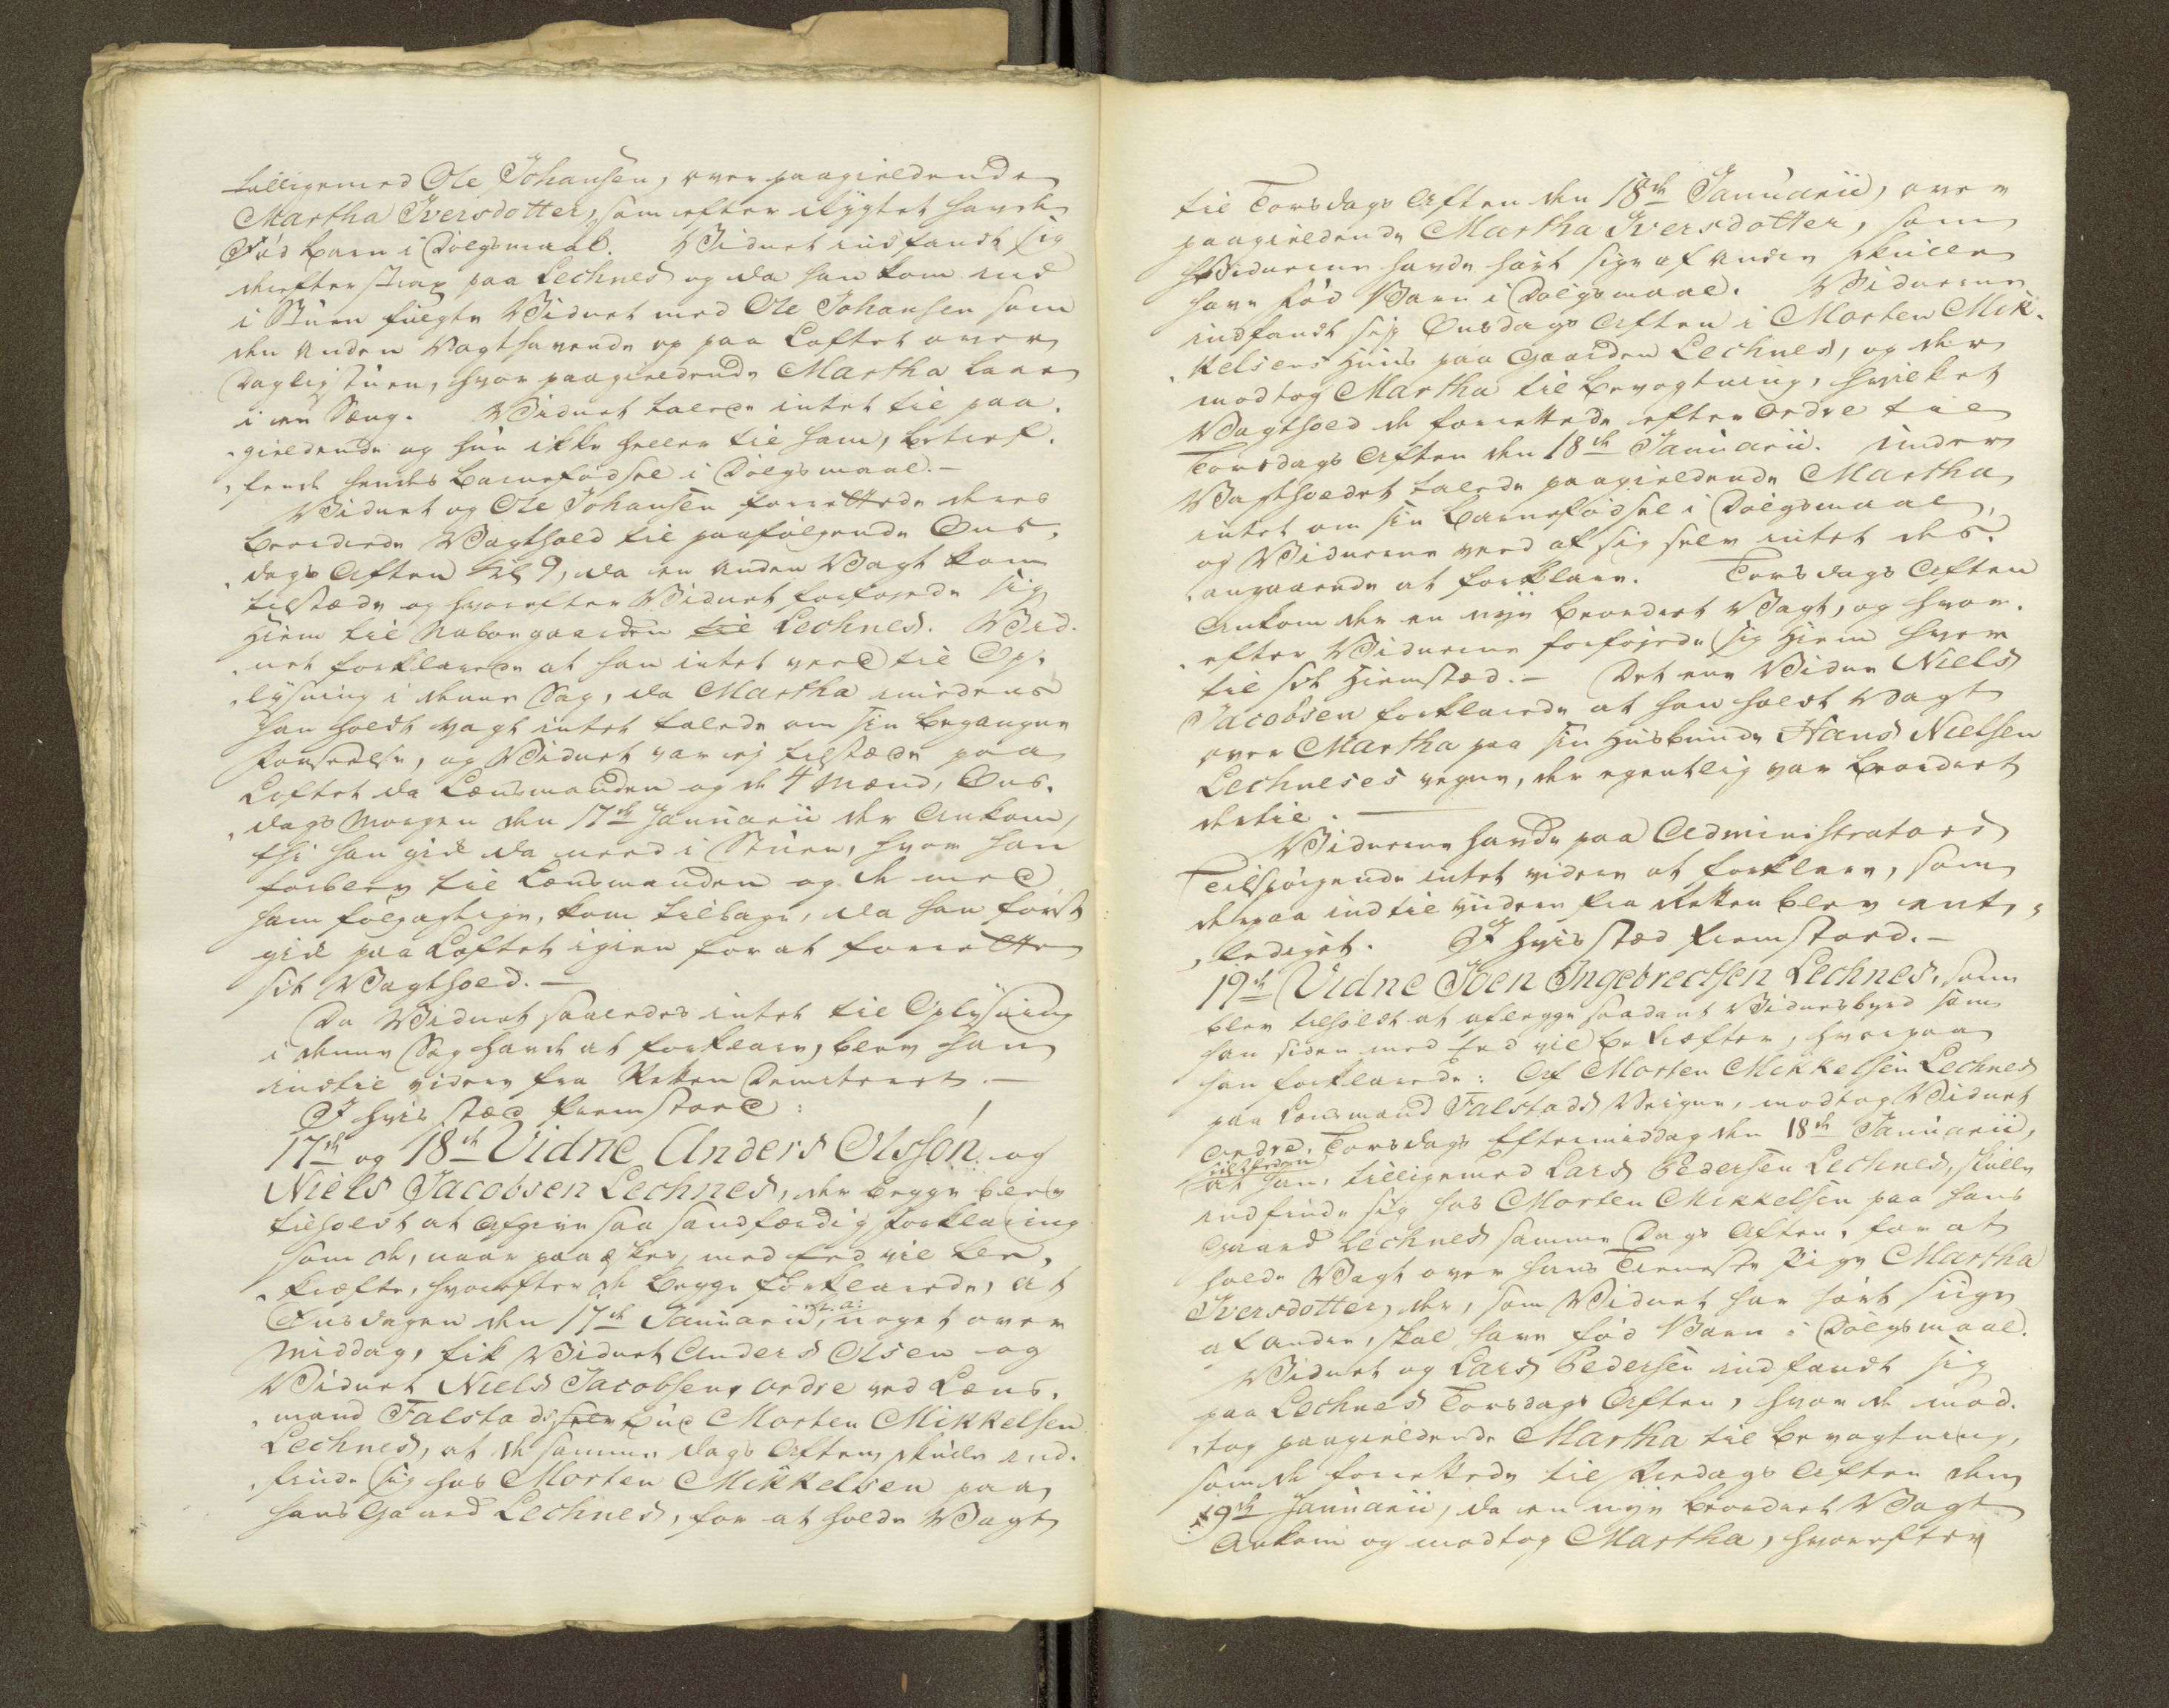 tilligemed Ole Johansen, over paagieldende
Martha Iversdotter, som efter Rygtet havde
Fød Barn i Dølgsmaal. Vidnet indfandt sig
derefter strax paa Lechnes og da han kom ind
i Stuen fulgte Vidnet med Ole Johansen som
den anden Vagthavende op paa Loftet over
Dagligstuen, hvor paagieldende Martha laae
i en Seng. Vidnet talede intet til paa-
gieldende og hun ikke heller til ham, betref-
fende hendes Barnefødsel i Dølgsmaal.-
Vidnet og Ole Johansen forrettede deres
beordrede Vagthold til paafølgende Ons-
dags Aften Kl 9, da en anden Vagt kom
tilstæde og hvorefter Vidnet forføiede sig
Hiem til Nabogaarden til Lechnes. Vid-
net forklarede at han intet veed til Op-
lysning i denne Sag, da Martha imedens
han holdt Vagt intet talede om sin begangne
Forseelse, og Vidnet var ej tilstæde paa
Loftet da Lensmanden og de 4 Mænd, Ons-
dags Morgen den 17de Januarii der ankom,
thi han gik da need i Stuen, hvor han
forblev til Lensmanden og de med
ham følgagtige, kom tilbage, da han først
gik paa Loftet igien for at forrette
sit Vagthold.-
Da Vidnet saaledes intet til Oplysning
i denne Sag havde at forklare, blev han
indtil videre fra Retten Demitteret.-
I hvis stæd fremstod:
17de og 18de Vidne Anders Olssøn og
Niels Jacobsen Lechnes, der begge blev
tilholdt at afgive saa sandfærdig forklaring
som de, naar paaæskes, med Eed vil be-
kræfte, hvorefter de begge forklarede, at
Onsdagen den 17de Januarii h. a: noget over
Middag, fik Vidnet Anders Olsen og
Vidnet Niels Jacobsen, ordre ved Lens-
mand Falstads Bud Morten Mikkelsen
Lechnes, at de samme Dags Aften skulde ind-
finde sig hos Morten Mikkelsen paa
hans Gaard Lechnes, for at holde Vagt
til Torsdags Aften den 18de Januarii, over
paagieldende Martha Iversdotter, som
Vidnerne havde hørt sige af andre skulle
have fød Barn i Dølgsmaal. Vidnerne
indfandt sig Onsdags Aften i Morten Mik-
kelsens Huus paa Gaarden Lechnes, og der
modtog Martha til Bevogtning, hvilket
Vagthold de forrettede efter Ordre til
Torsdags Aften den 18de Januarii. Under
Vagtholdet talede paagieldende Martha
intet om sin Barnefødsel i Dølgsmaal,
og Vidnerne veed af sig selv intet des-
angaaende at forklare. Torsdags Aften
ankom der en nye beordret Vagt, og hvor-
efter Vidnerne forføiede sig Hiem hver
til sit Hiemstæd.- Det ene Vidne Niels
Jacobsen forklarede at han holdt Vagt
over Martha paa sin Husbonde Hans Nielsen
Lechneses vegne, der egentlig var beordret
dertil.
Vidnerne havde paa Administrators
Tilspørgende intet videre at forklare, som
derpaa indtil viidere fra Retten blev ent-
lediget. I hvis stæd fremstoed.-
19de Vidne Joen Ingebrectsen Lechnes, som
blev tilholdt at aflegge saadant Vidnesbyrd som
han siden med Eed vil bekræfte, hvorpaa
han forklarede: Af Morten Mikkelsen Lechnes
paa Lensmand Falstads Veigne, modtog Vidnet
Ordre, Torsdags Eftermiddag den 18de Januarii,
at han, tilligemed Lars Pedersen Lechnes, skulle
indfinde sig hos Morten Mikkelsen paa hans
Gaard Lechnes samme Dags Aften, for at
holde Vagt over hans Tieneste Pige Martha
Iversdotter, der, som Vidnet har hørt siige
af andre, skal have fød Barn i Dølgsmaal.
Vidnet og Lars Pedersen indfandt sig
paa Lechnes Torsdags Aften, hvor de mod-
tog paagieldende Martha til Bevogtning,
som de forrettede til Fredags Aften den
19de Januarii, da en nye beordret Vagt
ankom og modtog Martha, hvorefter